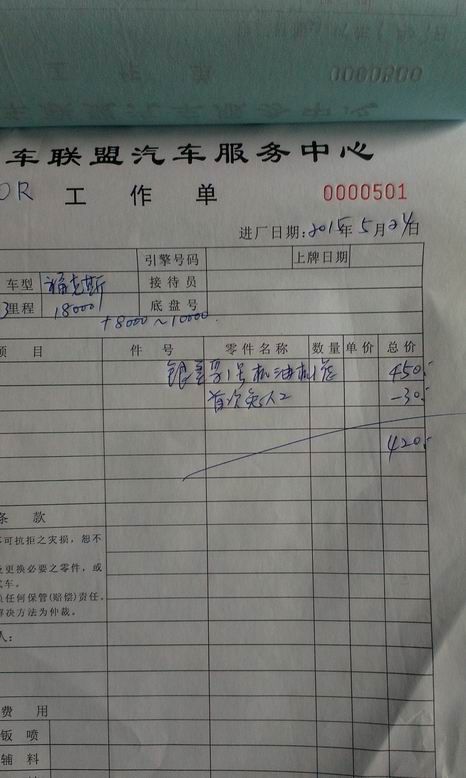 0000500
车联盟汽车服务中心
OR 工作单 0000501
进厂日期:2015年5月24日
引擎号码 上牌日期
车型 福克斯 接待员
里程 18000 底盘号
+8000~10000
项目 件号 零件名称 数量 单价 总价
银美孚1号机油机滤 450
首次免人工 -30
420
条款
不可抗拒之灾损,恕不
更换必要之零件,或
式车。
负任何保管(赔偿)责任。
解决方法为仲裁。
人:
费用
钣喷
辅料